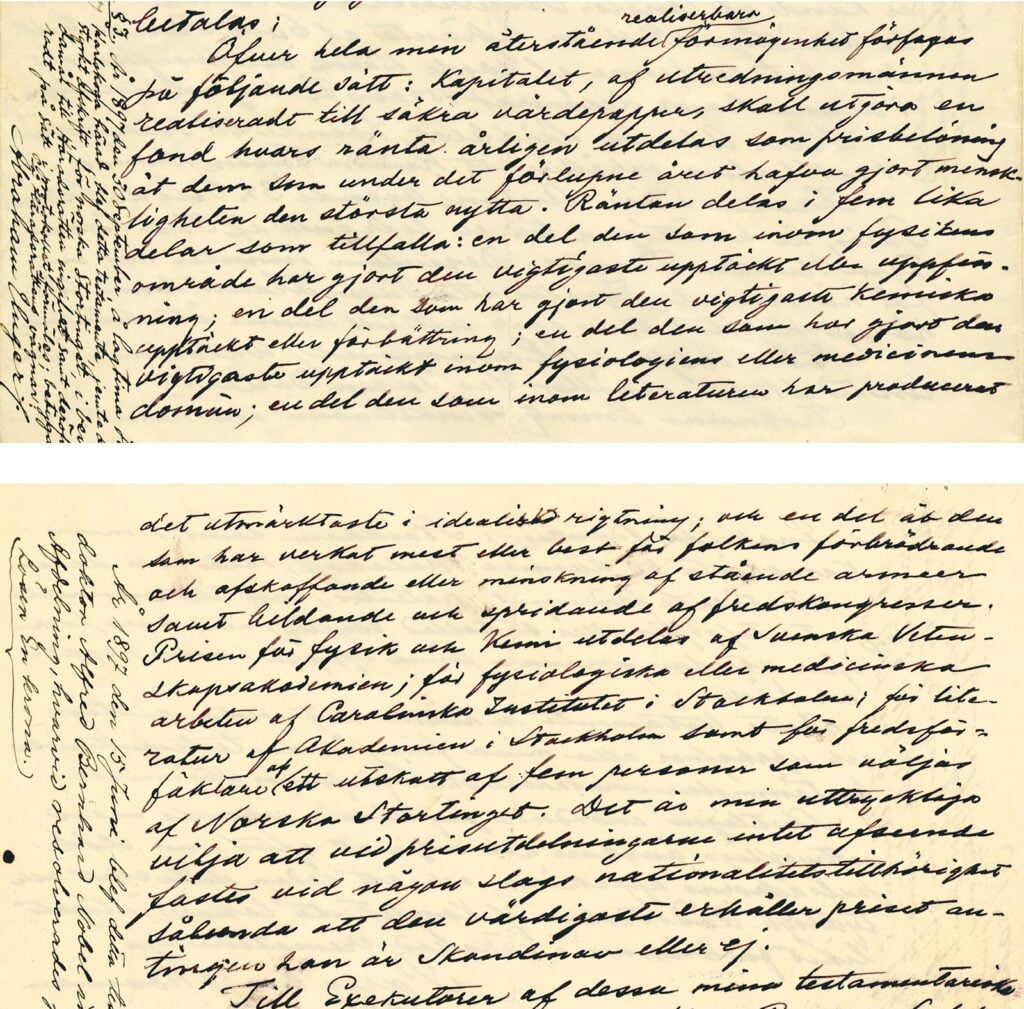 betalas;
Öfver hela min återstående realiserbara förmögenhet förfogas
på följande sätt: Kapitalet, af utredningsmännen
realiseradt till säkra värdepapper, skall utgöra en
fond hvars ränta årligen utdelas som prisbelöning
åt dem som under det förlupne året hafva gjort mensk-
ligheten den största nytta. Räntan delas i fem lika
delar som tillfalla: en del den som inom fysikens
område har gjort den vigtigaste upptäckt eller uppfin-
ning; en del den som har gjort den vigtigaste kemiska
upptäckt eller förbättring; en del den som har gjort den
vigtigaste upptäckt inom fysiologiens eller medicinens
domän; en del den som inom literaturen har producerat
det utmärktaste i idealisk rigtning; och en del åt den
som har verkat mest eller best för folkens förbrödrande
och afskaffande eller minskning af stående armeer
samt bildande och spridande af fredskongresser.
Prisen för fysik och kemi utdelas af Svenska Veten-
skapsakademien; för fysiologiska eller medicinska
arbeten af Carolinska Institutet i Stockholm; för lite-
ratur af Akademien i Stockholm samt för fredsför-
fäktare af ett utskott af fem personer som väljas
af Norska Stortinget. Det är min uttryckliga
vilja att vid prisutdelningarne intet afseende
fästes vid någon slags nationalitetstillhörighet
sålunda att den värdigaste erhåller priset an-
tingen han är Skandinav eller ej.
Till Exekutorer af dessa mina testamentariska
År 1897 den 15 Juni blef detta
doktor Alfred Bernhard Nobel
Afdelning, hvarvid redovarades
Lösen En krona.
Abraham Unger